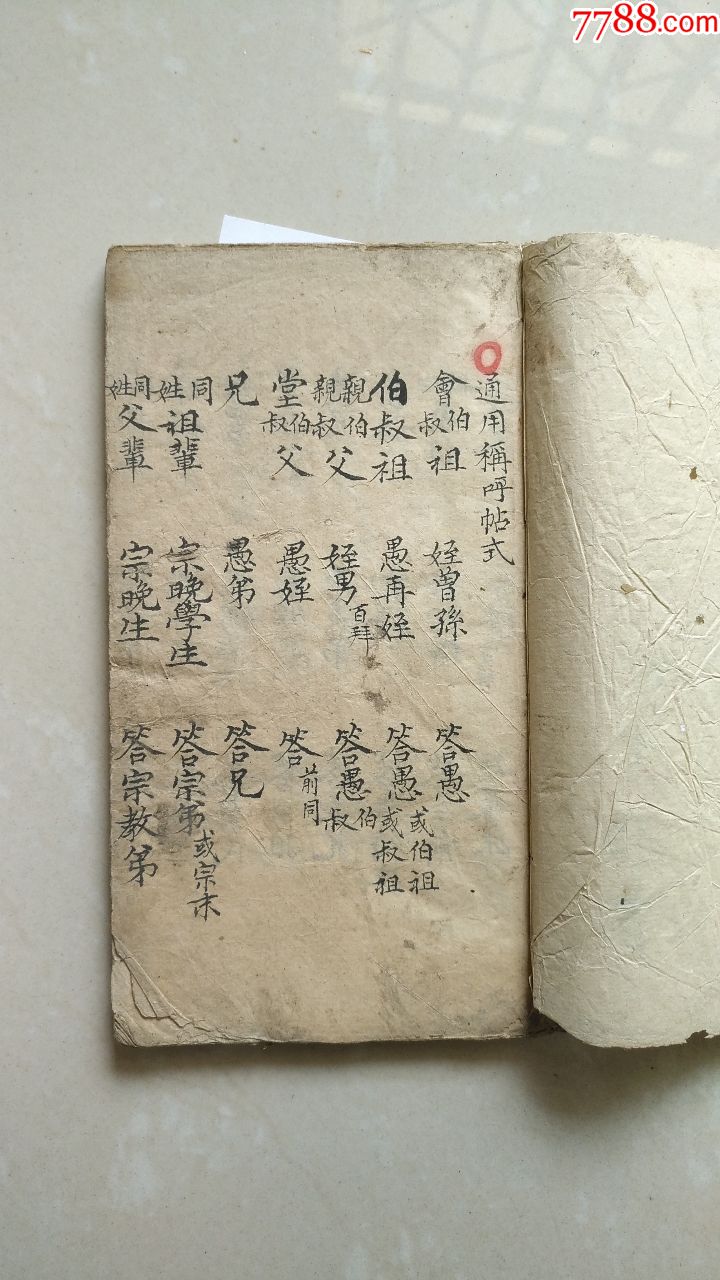 7788.com
通用稱呼帖式
會伯叔祖 姪曾孫 答愚
伯叔祖 愚再姪 答愚或伯祖或叔祖
親伯親叔父 姪男百拜 答愚伯叔
堂伯叔父 愚姪 答前同
兄 愚弟 答兄
同姓祖輩 宗晚學生 答宗弟或宗末
同姓父輩 宗晚生 答宗教弟